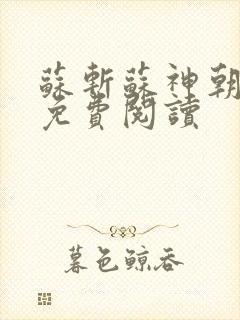 蘇斬蘇神朝
免費閱讀
暮色鯨吞